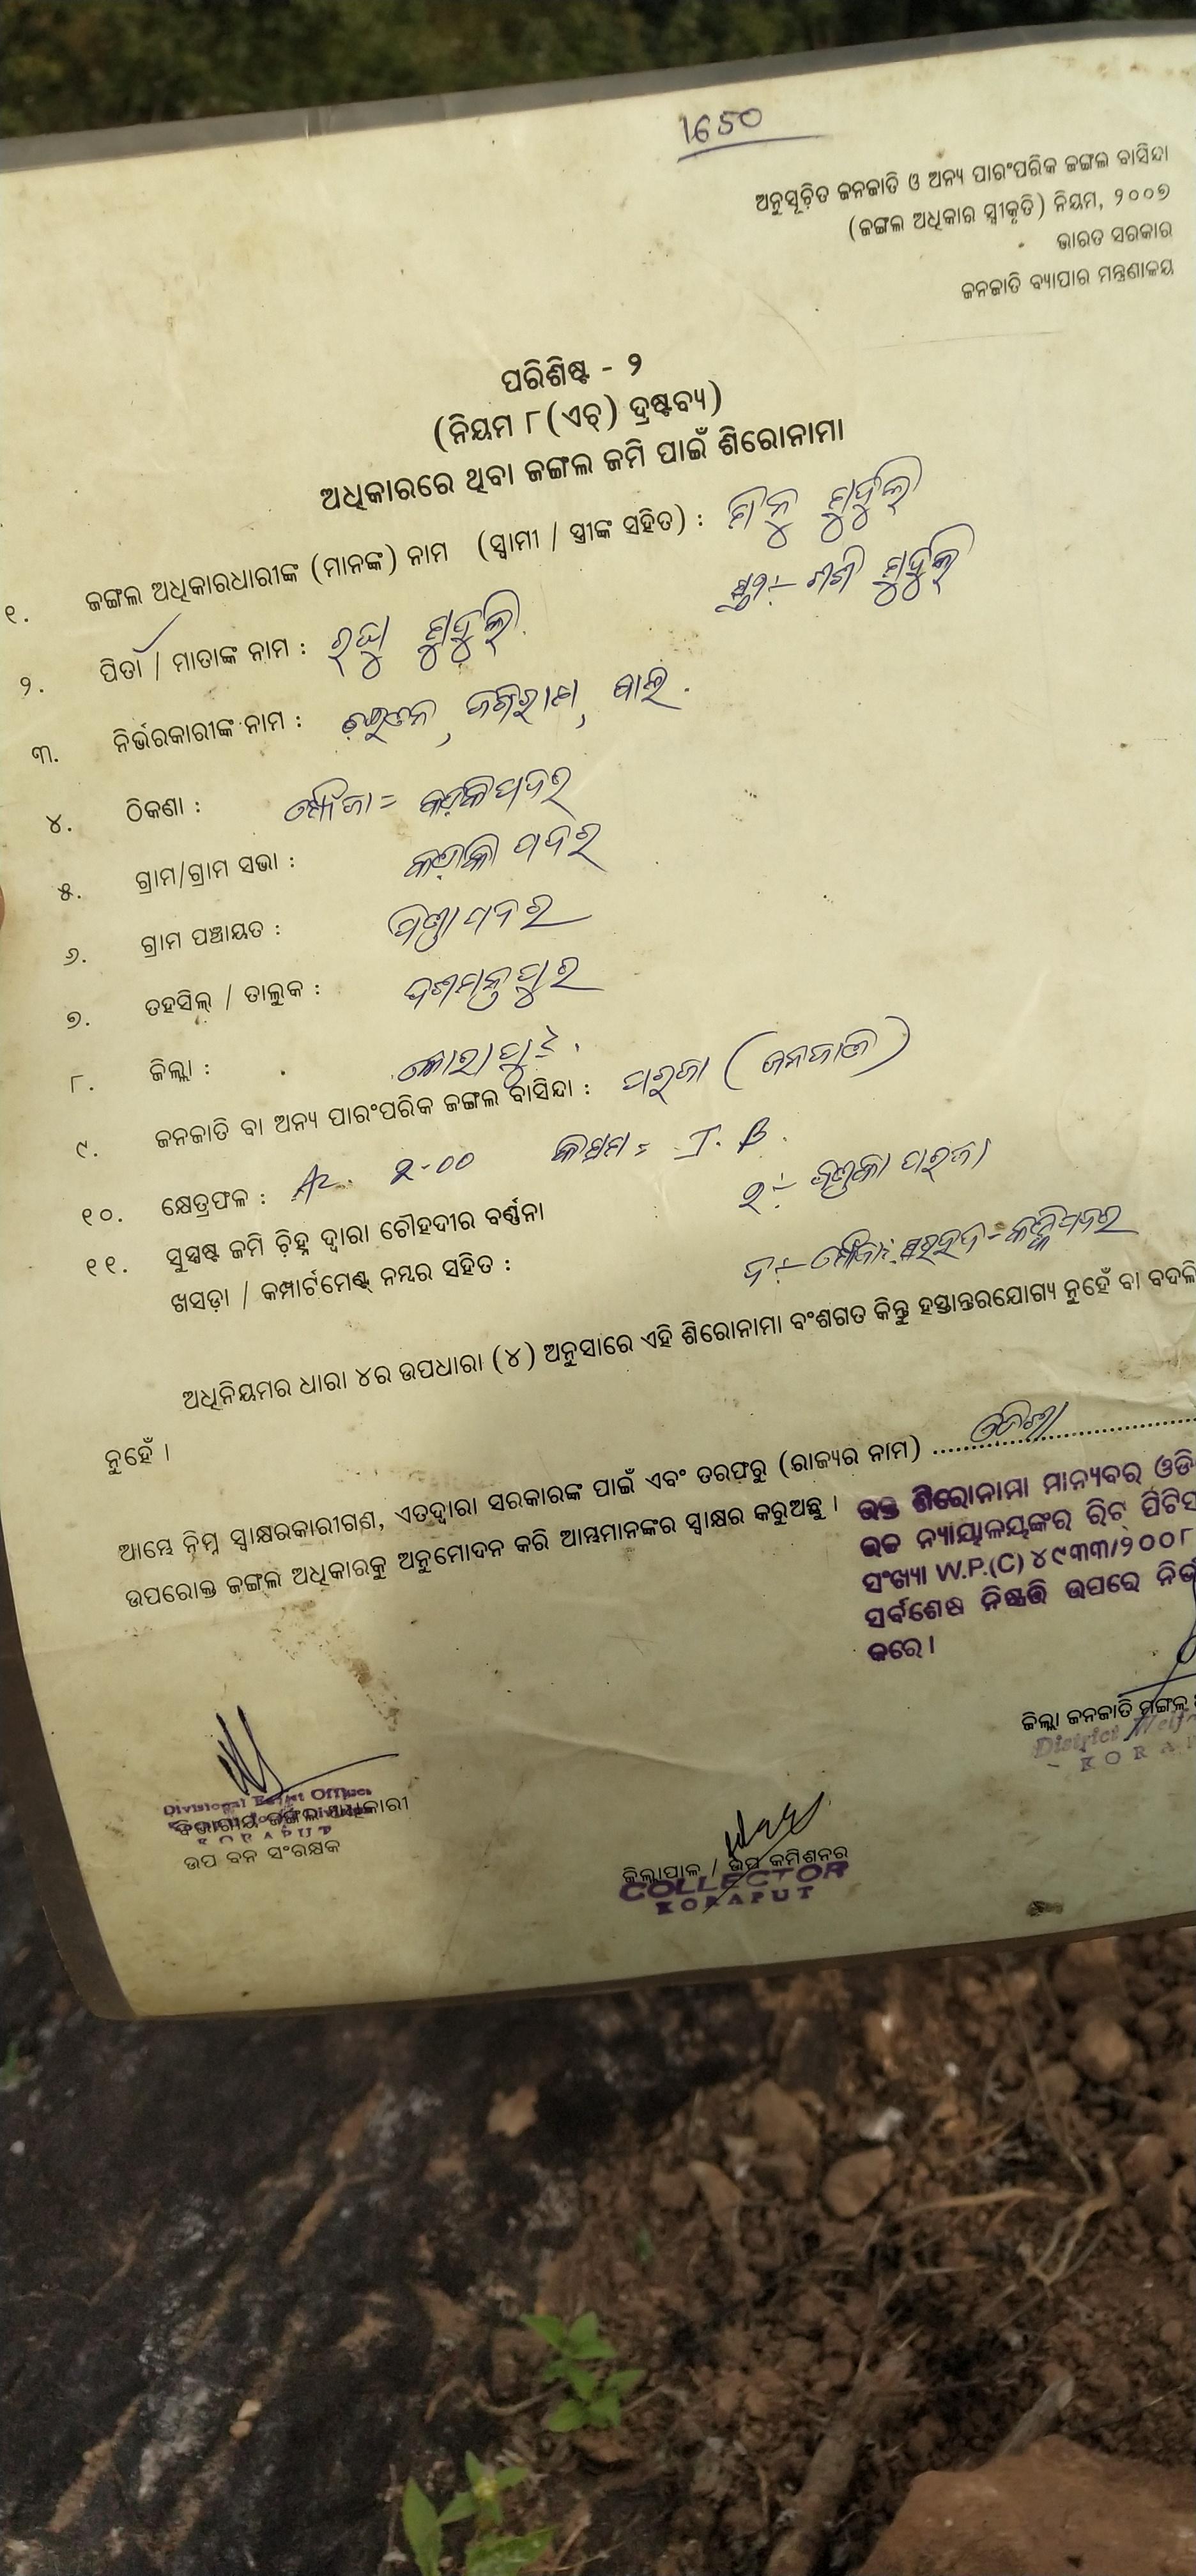 1650
ଅନୁସୂଚିତ ଜନଜାତି ଓ ଅନ୍ୟ ପାରଂପରିକ ଜଙ୍ଗଲ ବାସିନ୍ଦା
(ଜଙ୍ଗଲ ଅଧିକାର ସ୍ୱୀକୃତି) ନିୟମ, ୨୦୦୭
ଭାରତ ସରକାର
ଜନଜାତି ବ୍ୟାପାର ମନ୍ତ୍ରଣାଳୟ
ପରିଶିଷ୍ଟ - ୨
(ନିୟମ ୮(ଏଚ୍) ଦ୍ରଷ୍ଟବ୍ୟ)
ଅଧିକାରରେ ଥିବା ଜଙ୍ଗଲ ଜମି ପାଇଁ ଶିରୋନାମା
୧. ଜଙ୍ଗଲ ଅଧିକାରଧାରୀଙ୍କ (ମାନଙ୍କ) ନାମ (ସ୍ୱାମୀ / ସ୍ତ୍ରୀଙ୍କ ସହିତ) : ମିନୁ ମୁଦୁଲି
ମୁଦୁଲି
୨. ପିତା / ମାତାଙ୍କ ନାମ : ରଘୁ ମୁଦୁଲି
୩. ନିର୍ଭରକାରୀଙ୍କ ନାମ :
୪. ଠିକଣା : ମୌଜା =
୫. ଗ୍ରାମ/ଗ୍ରାମ ସଭା :
୬. ଗ୍ରାମ ପଞ୍ଚାୟତ :
୭. ତହସିଲ୍ / ତାଲୁକ : ଦଶମନ୍ତପୁର
୮. ଜିଲ୍ଲା : କୋରାପୁଟ
୯. ଜନଜାତି ବା ଅନ୍ୟ ପାରଂପରିକ ଜଙ୍ଗଲ ବାସିନ୍ଦା : ପରଜା (ଜନଜାତି)
୧୦. କ୍ଷେତ୍ରଫଳ : Ac. ୨-୦୦ କିସମ = J. B.
୧୧. ସୁସ୍ପଷ୍ଟ ଜମି ଚିହ୍ନ ଦ୍ୱାରା ଚୌହଦୀର ବର୍ଣ୍ଣନା ପରଜା
ଖସଡ଼ା / କମ୍ପାର୍ଟମେଣ୍ଟ୍ ନମ୍ବର ସହିତ :
ଅଧିନିୟମର ଧାରା ୪ର ଉପଧାରା (୪) ଅନୁସାରେ ଏହି ଶିରୋନାମା ବଂଶଗତ କିନ୍ତୁ ହସ୍ତାନ୍ତରଯୋଗ୍ୟ ନୁହେଁ ବା ବଦଳି
ନୁହେଁ ।
ଆମ୍ଭେ ନିମ୍ନ ସ୍ୱାକ୍ଷରକାରୀଗଣ, ଏତଦ୍ୱାରା ସରକାରଙ୍କ ପାଇଁ ଏବଂ ତରଫରୁ (ରାଜ୍ୟର ନାମ) ଓଡିଶା
ଉପରୋକ୍ତ ଜଙ୍ଗଲ ଅଧିକାରକୁ ଅନୁମୋଦନ କରି ଆମ୍ଭମାନଙ୍କର ସ୍ୱାକ୍ଷର କରୁଅଛୁ ।
ଉକ୍ତ ଶିରୋନାମା ମାନ୍ୟବର ଓଡି
ଉଚ୍ଚ ନ୍ୟାୟାଳୟଙ୍କର ରିଟ୍ ପିଟିସ
ସଂଖ୍ୟା W.P.(C) ୪୯୩୩/୨୦୦୮
ସର୍ବଶେଷ ନିଷ୍ପତ୍ତି ଉପରେ ନିର୍ଭ
କରେ ।
ଜିଲ୍ଲା ଜନଜାତି ମଙ୍ଗଳ
District Welf
KORAP
Divisional Forest Officer
ବିଭାଗୀୟ ଜଙ୍ଗଲ ଅଧିକାରୀ
KORAPUT
ଉପ ବନ ସଂରକ୍ଷକ
ଜିଲ୍ଲାପାଳ / ଉପ କମିଶନର
COLLECTOR
KORAPUT